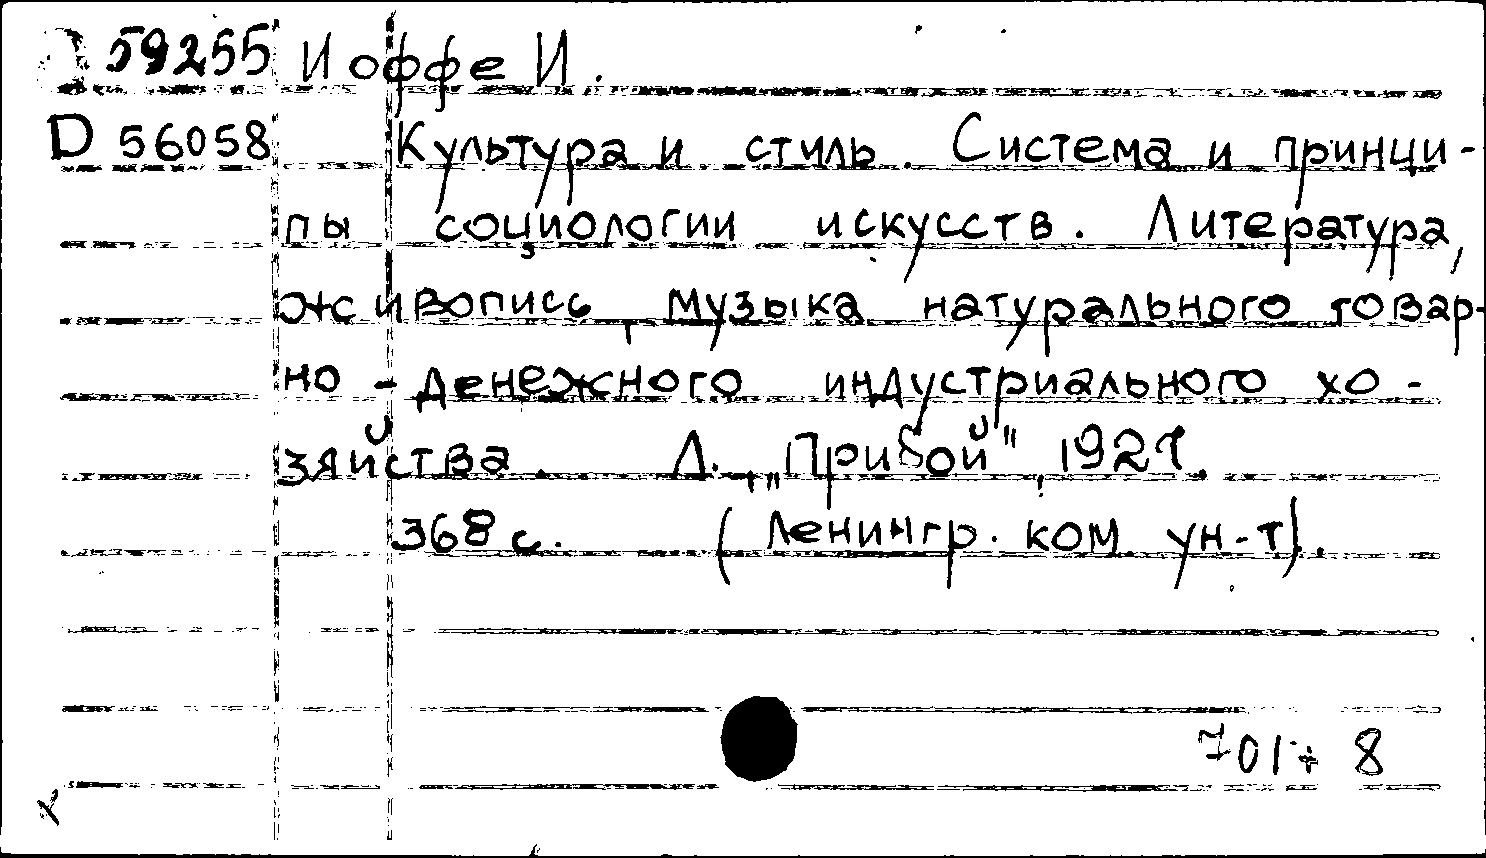 59255 Иоффе И.
D 56058 Культура и стиль. Система и принци-
пы социологии искусств. Литература,
живопись, музыка натурального товар-
но-денежного индустриального хо-
зяйства. Л., „Прибой", 1927.
368 с. (Ленингр. ком. ун-т).
701+8